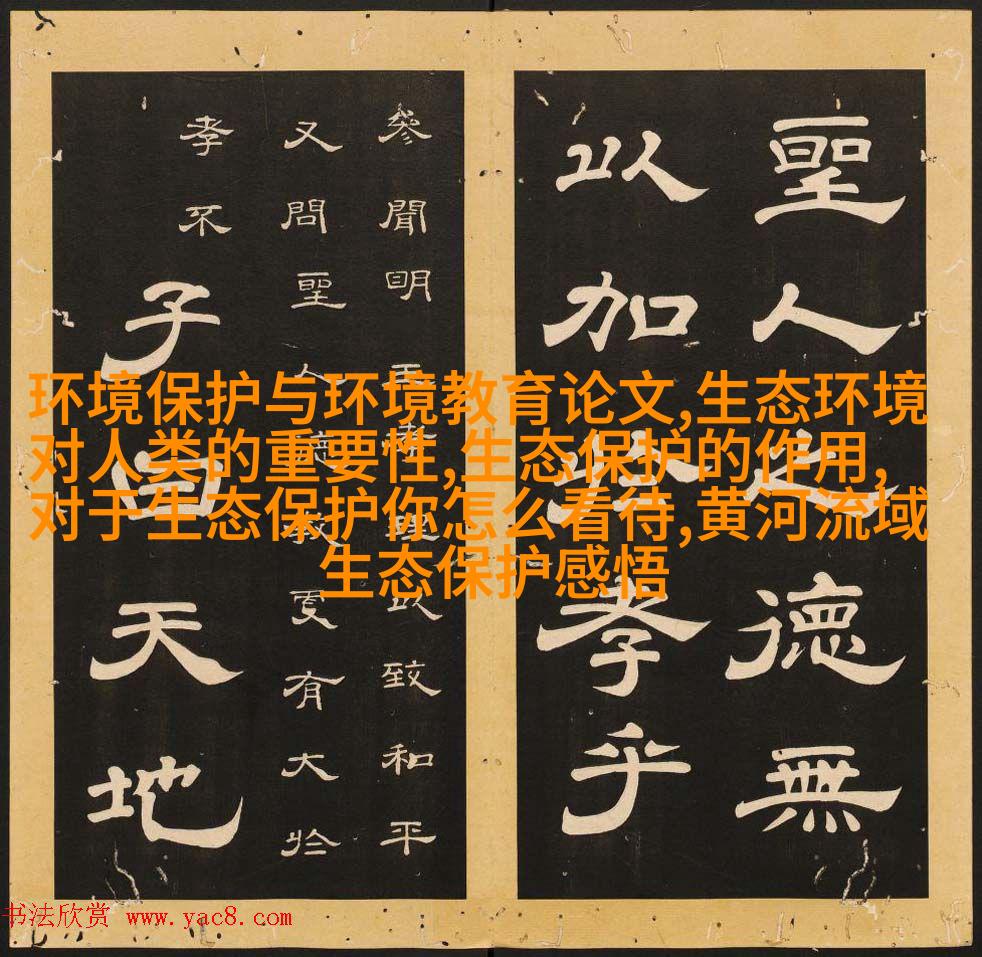 聖人之德無
以加孝乎
參聞明王孝理以致和平
又問聖人德教更有大於
孝不
子曰天地
环境保护与环境教育论文,生态环境
对人类的重要性,生态保护的作用,
对于生态保护你怎么看待,黄河流域
生态保护感悟
书法欣赏 www.yac8.com